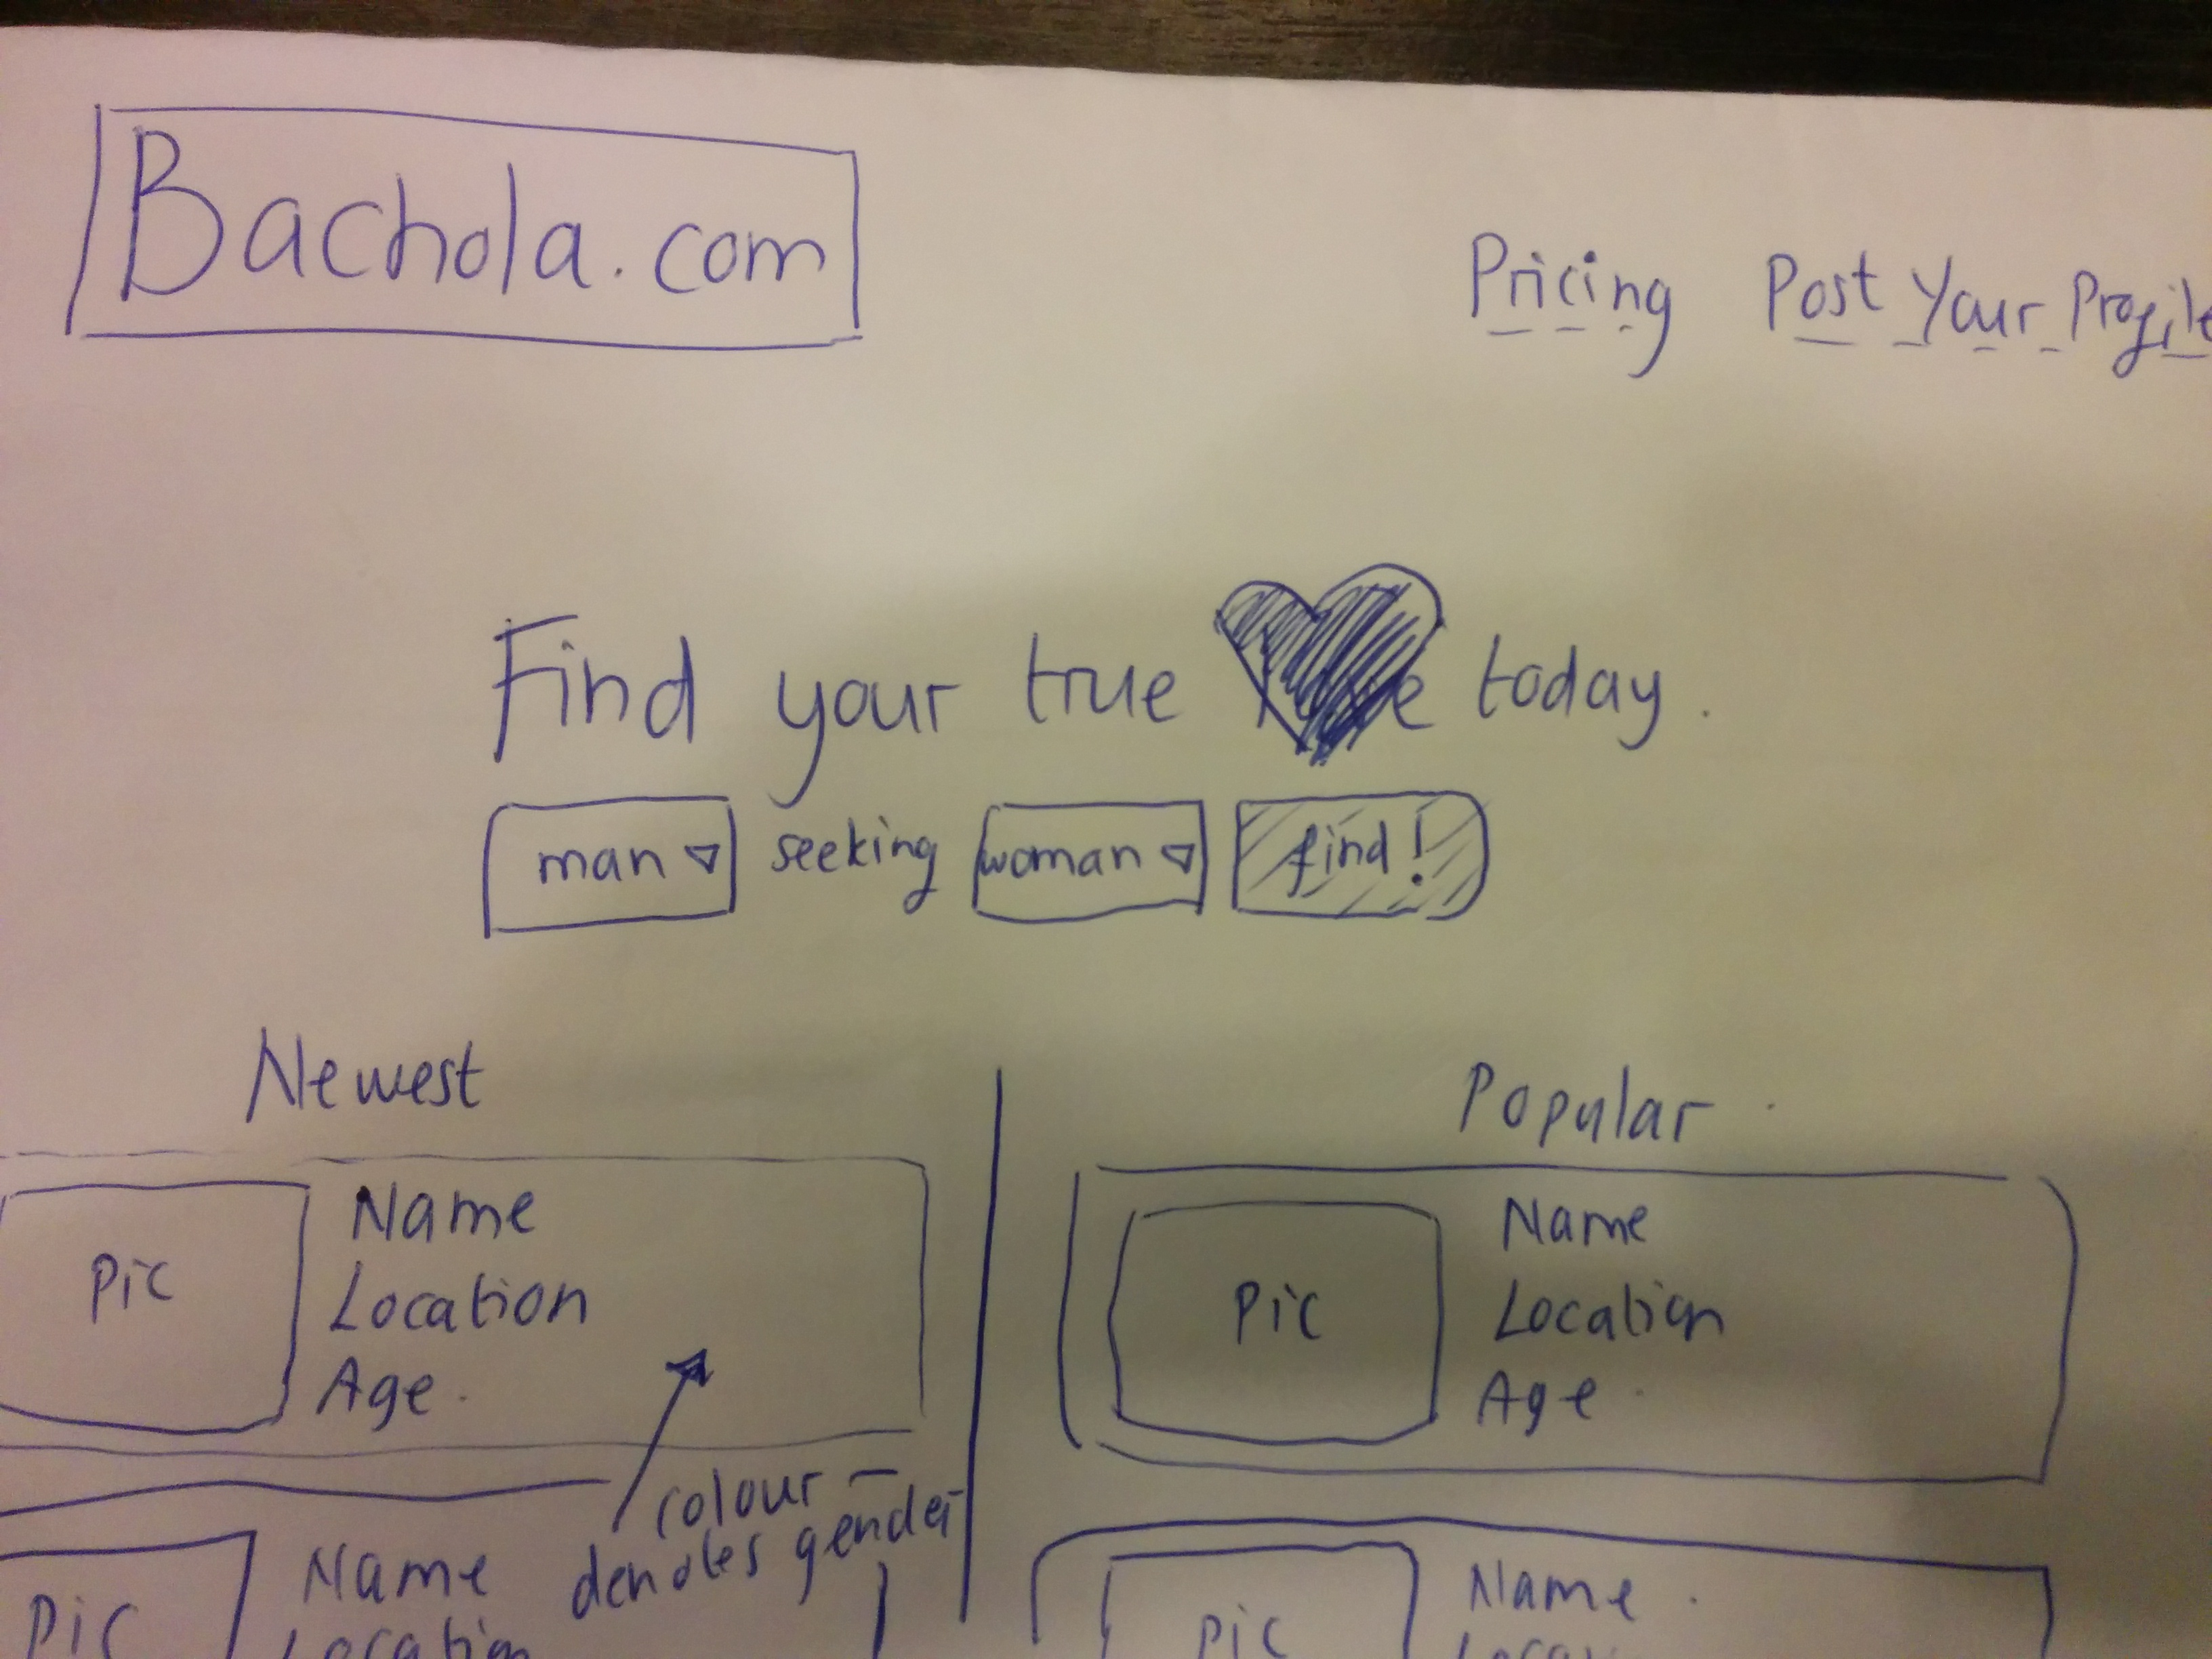 Bachola.com
Pricing Post Your Profile
Find your true love today.
man seeking woman find!
Newest
Pic
Name
Location
Age.
colour
denotes gender
Pic
Name
Location
Popular
Pic
Name
Location
Age
Pic
Name